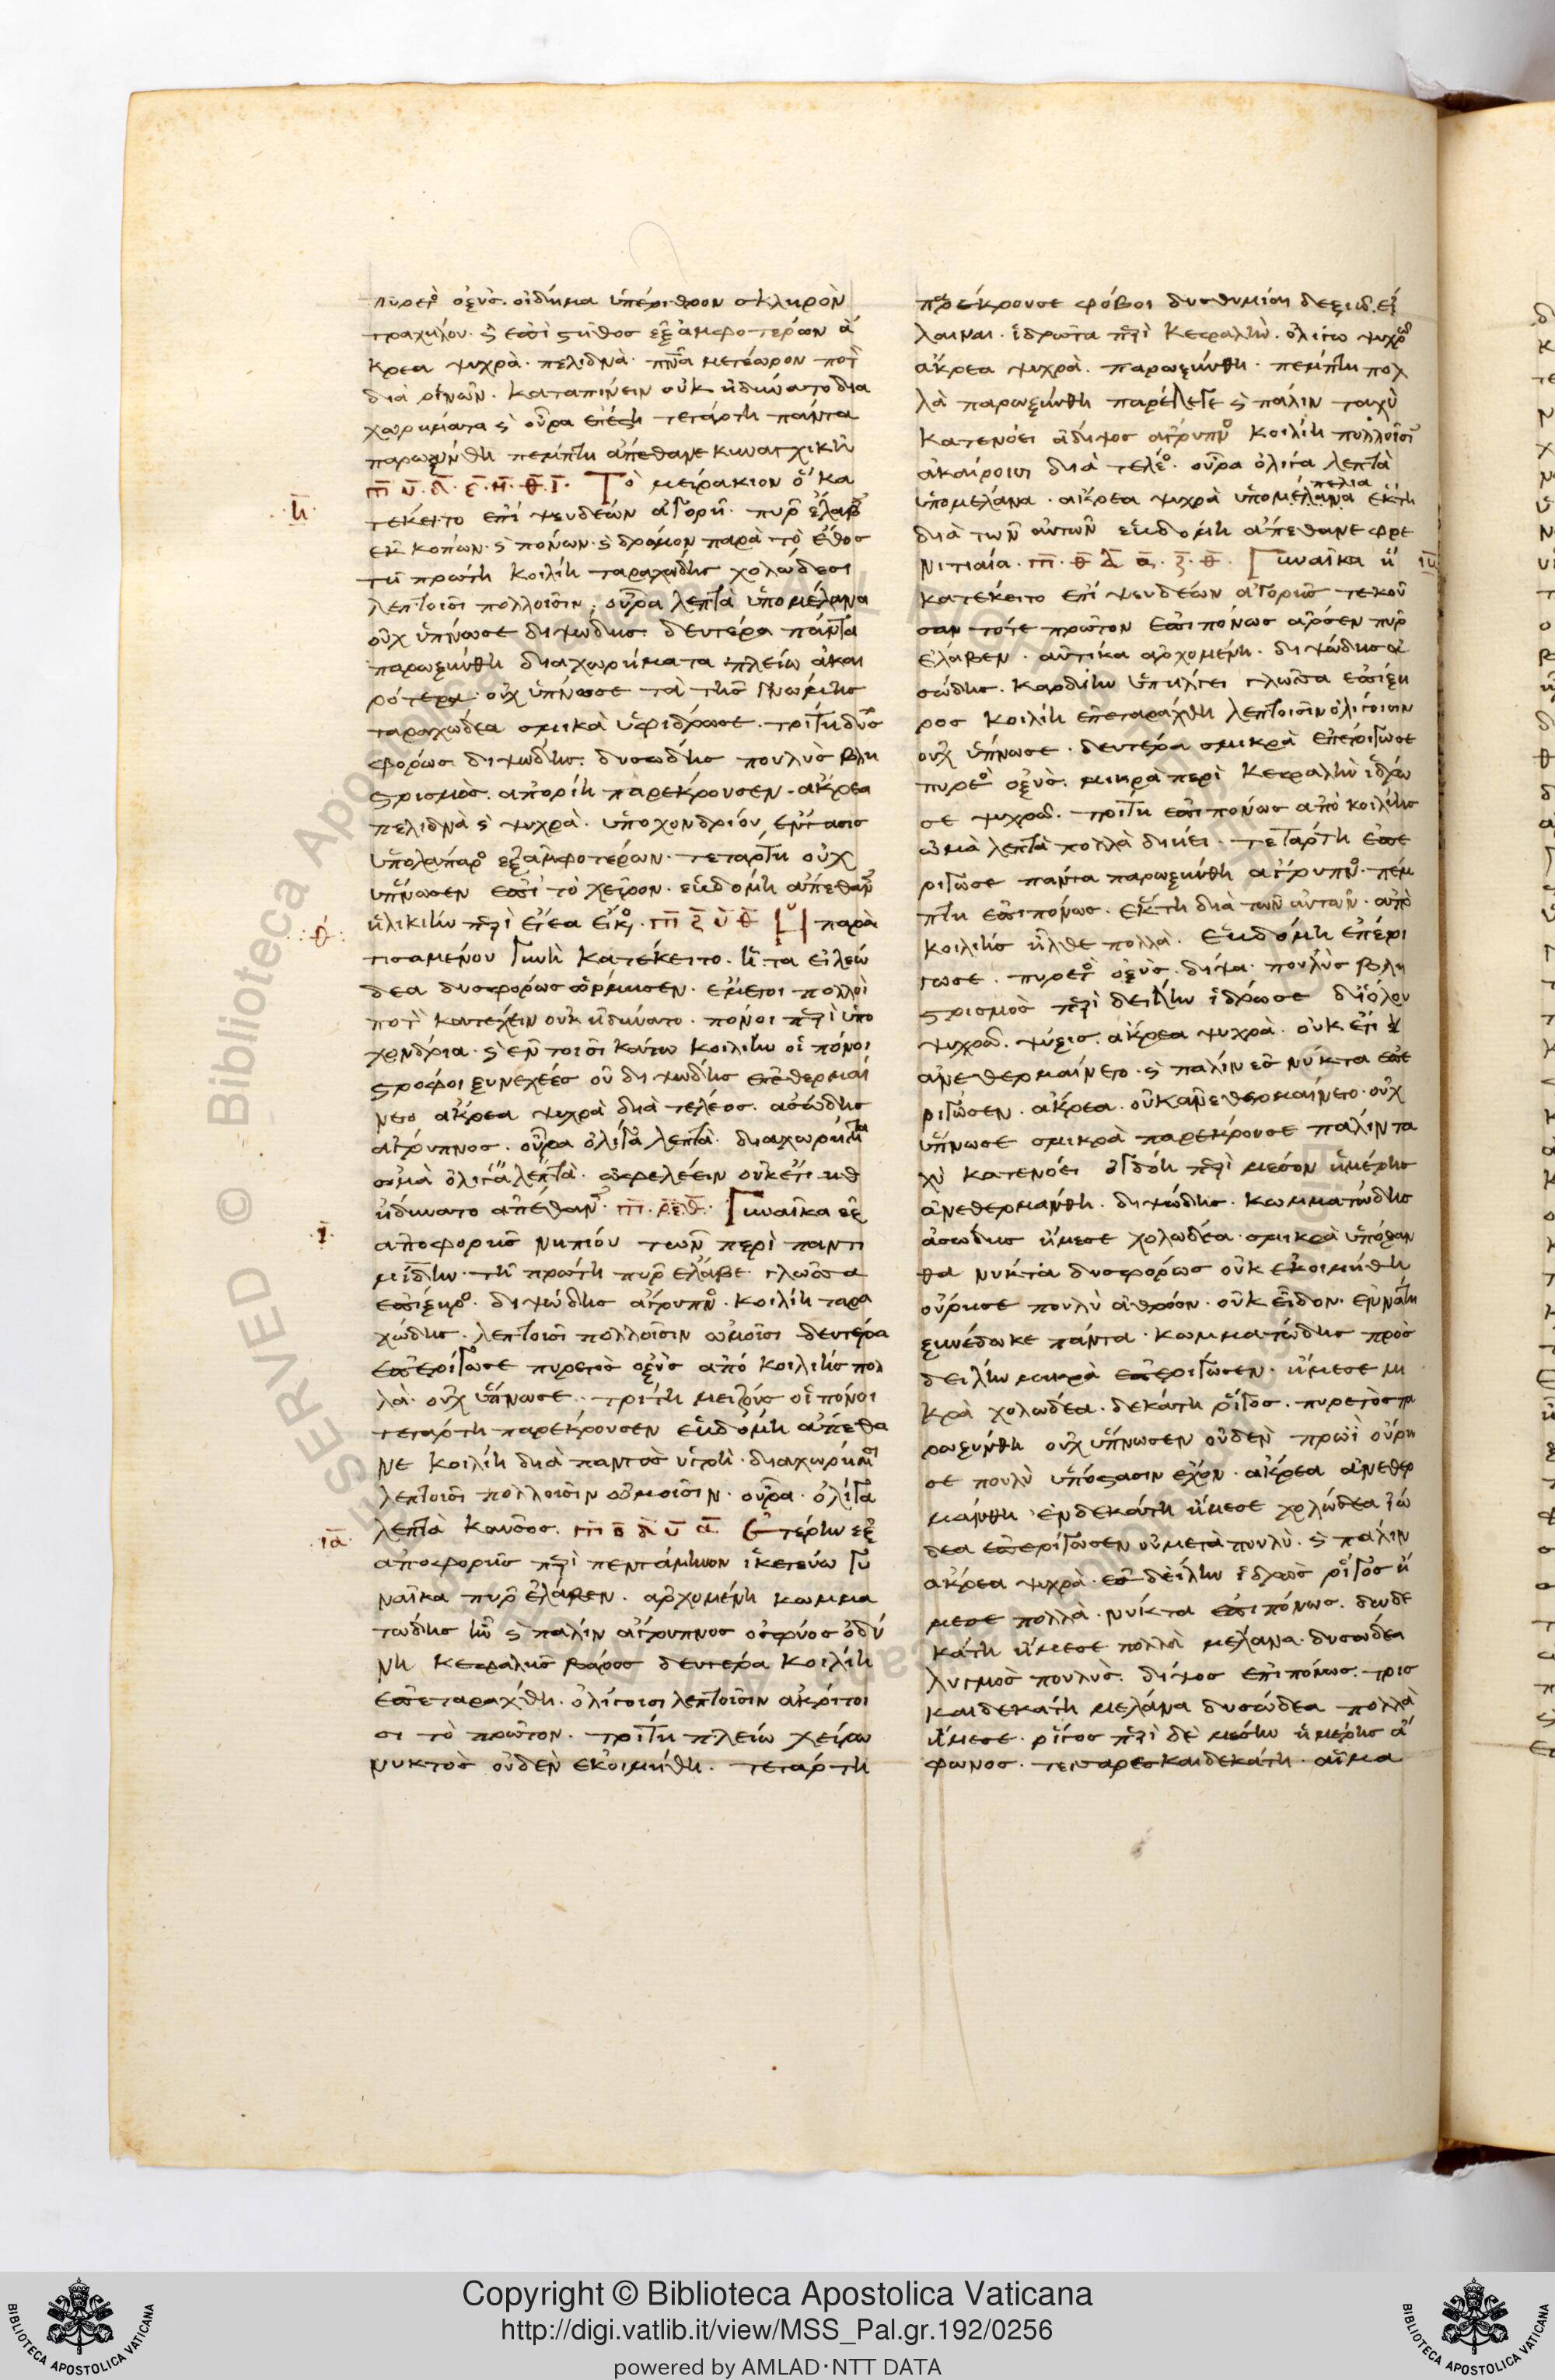 πυρετὸς ὀξύς. οἴδημα ὑπέρυθρον σκληρὸν
τραχήλου. ϗ ἐπὶ στῆθος ἐξ ἀμφοτέρων ἄ
κρεα ψυχρὰ. πελιδνὰ. πν̅α μετέωρον ποτὸν
διὰ ῥινῶν. καταπίνειν οὐκ ἠδύνατο δια
χωρήματα ϗ οὖρα ἐπέστη τετάρτη πάντα
παρωξύνθη πέμπτη ἀπέθανε κυναγχικὴ
Τὸ μειράκιον ὃ κα
η̅
τέκειτο ἐπὶ ψευδέων ἀγορῇ. πῦρ ἔλαβεν
ἐκ κόπων. ϗ πόνων. ϗ δρόμον παρὰ τὸ ἔθος
τῇ πρώτη κοιλίη ταραχώδης χολώδεσι
λεπτοῖσι πολλοῖσιν. οὖρα λεπτὰ ὑπομέλανα
οὐχ ὕπνωσε διψώδης. δευτέρα πάντα
παρωξύνθη διαχωρήματα πλείω ἀκαι
ρότερα. οὐχ ὕπνωσε τὰ τῆς γνώμης
ταραχώδεα σμικρὰ ὑφίδρωσε. τρίτη δυσ
φόρως διψώδης. δυσώδης πουλὺς βλη
στρισμὸς. ἀπορίη παρέκρουσεν. ἄκρεα
πελιδνὰ ϗ ψυχρὰ. ὑποχονδρίου ἔντασις
ὑπολάπαρος ἐξ ἀμφοτέρων. τετάρτη οὐχ
ὕπνωσεν ἐπὶ τὸ χεῖρον. ἑβδόμη ἀπέθανεν
ἡλικίην περὶ ἔτεα εἴκοσι. παρὰ
θ̅
τισαμένου γυνὴ κατέκειτο. ἧ τα εἰλεώ
δεα δυσφόρως ὥρμησεν. ἔμετοι πολλοὶ
ποτὸν κατέχειν οὐκ ἠδύνατο. πόνοι περὶ ὑπο
χόνδρια. ϗ ἐν τοῖσι κάτω κοιλίην οἱ πόνοι
στρόφοι ξυνεχέες οὐ διψώδης ἐπεθερμαί
νετο ἄκρεα ψυχρὰ διὰ τέλεος. ἀσώδης
ἄγρυπνος. οὖρα ὀλίγα λεπτὰ. διαχωρήματα
ὠμὰ ὀλίγα λεπτὰ. ὠφελέειν οὐκέτι
ἠδύνατο ἀπέθανεν. Γυναῖκα ἐξ
ι̅
ἀποφορῆς νηπίου τῶν περὶ παντι
μίδην. τῇ πρώτη πῦρ ἔλαβε. γλῶσσα
ἐπίξηρος. διψώδης ἄγρυπνος. κοιλίη ταρα
χώδης. λεπτοῖσι πολλοῖσιν ὠμοῖσι δευτέρα
ἐπερίγωσε πυρετὸς ὀξὺς ἀπὸ κοιλίης πολ
λὰ. οὐχ ὕπνωσε. τρίτη μείζους οἱ πόνοι
τετάρτη παρέκρουσεν ἑβδόμη ἀπέθα
νε κοιλίη διὰ παντὸς ὑγρὴ. διαχωρήμασι
λεπτοῖσι πολλοῖσιν ὠμοῖσιν. οὖρα. ὀλίγα
λεπτὰ καῦσος. Ἑτέρην ἐξ
ια̅
ἀποφορῆς περὶ πεντάμηνον ἱκετεύω γυ
ναῖκα πῦρ ἔλαβεν. ἀρχομένη κωμμα
τώδης ἦν ϗ πάλιν ἄγρυπνος ὀσφύος ὀδύ
νη κεφαλῆς βάρος δευτέρα κοιλίη
ἐπεταράχθη. ὀλίγοισι λεπτοῖσιν ἀκρίτοι
σι τὸ πρῶτον. τρίτη πλείω χείρω
νυκτὸς οὐδὲν ἐκοιμήθη. τετάρτη
παρέκρουσε φόβοι δυσθυμίαι δεξιῷ εἴ
λαιναι. ἵδρωτα περὶ κεφαλὴν. ὀλίγω ψυχρῶ
ἄκρεα ψυχρὰ. παρωξύνθη. πέμπτη πολ
λὰ παρωξύνθη παρέλεγε ϗ πάλιν ταχὺ
κατενόει ἄδιψος ἄγρυπνος κοιλίη πολλοῖσι
ἀκαίροισι διὰ τέλεος. οὖρα ὀλίγα λεπτὰ
πελια
ὑπομέλανα. ἄκρεα ψυχρὰ ὑπομέλανα ἕκτη
διὰ τῶν αὐτῶν ἑβδόμη ἀπέθανε φρε
νιτιαία. Γυναῖκα ἣ ιβ̅
κατέκειτο ἐπὶ ψευδέων ἀγορῆς τεκοῦ
σαν τότε πρῶτον ἐπιπόνως ἄρσεν πῦρ
ἔλαβεν. αὐτίκα ἀρχομένη. διψώδης ἀ
σώδης. καρδίην ὑπήλγει γλῶσσα ἐπίξη
ρος κοιλίη ἐπεταράχθη λεπτοῖσιν ὀλίγοισιν
οὐχ ὕπνωσε. δευτέρα σμικρὰ ἐπερίγωσε
πυρετὸς ὀξὺς. μικρὰ περὶ κεφαλὴν ἵδρω
σε ψυχρῶ. τρίτη ἐπιπόνως ἀπὸ κοιλίης
ὠμὰ λεπτὰ πολλὰ διήει. τετάρτη ἐπε
ρίγωσε πάντα παρωξύνθη ἄγρυπνος. πέμ
πτη ἐπιπόνως. ἕκτη διὰ τῶν αὐτῶν. ἀπὸ
κοιλίης ἦλθε πολλὰ. ἑβδόμη ἐπερί
γωσε. πυρετὸς ὀξὺς. δίψα. πουλὺς βλη
στρισμὸς περὶ δείλην ἵδρωσε δι' ὅλου
ψυχρῶ. ψύξις. ἄκρεα ψυχρὰ. οὐκ ἔτι
ἀνεθερμαίνετο. ϗ πάλιν ἐς νύκτα ἐπε
ρίγωσεν. ἄκρεα. οὐκ ἀνεθερμαίνετο. οὐχ
ὕπνωσε σμικρὰ παρέκρουσε πάλιν τα
χὺ κατενόει ὀγδόη περὶ μέσον ἡμέρης
ἀνεθερμάνθη. διψώδης. κωμματώδης
ἀσώδης ἤμεσε χολώδεα. σμικρὰ ὑπόξαν
θα νύκτα δυσφόρως οὐκ ἐκοιμήθη
οὔρησε πουλὺ ἀθρόον. οὐκ εἶδον. ἐννάτη
ξυνέδωκε πάντα. κωμματώδης πρὸς
δείλην μικρὰ ἐπερίγωσεν. ἤμεσε μι
κρὰ χολώδεα. δεκάτη ῥῖγος. πυρετὸς πα
ρωξύνθη οὐχ ὕπνωσεν οὐδὲν πρωῒ οὔρη
σε πουλὺ ὑπόστασιν ἔχον. ἄκρεα ἀνεθερ
μάνθη ἑνδεκάτη ἤμεσε χολώδεα ἰώ
δεα ἐπερίγωσεν οὐ μετὰ πουλὺ. ϗ πάλιν
ἄκρεα ψυχρὰ. ἐς δείλην ἱδρὼς ῥῖγος ἤ
μεσε πολλὰ. νύκτα ἐπιπόνως. δωδε
κάτη ἤμεσε πολλὰ μέλανα. δυσώδεα
λυγμὸς πουλὺς. δίψος ἐπιπόνως. τρισ
καιδεκάτη μέλανα δυσώδεα πολλὰ
ἤμεσε. ῥῖγος περὶ δὲ μέσην ἡμέρης ἄ
φωνος. τεσσαρεσκαιδεκάτη. αἷμα
Copyright © Biblioteca Apostolica Vaticana
http://digi.vatlib.it/view/MSS_Pal.gr.192/0256
powered by AMLAD·NTT DATA